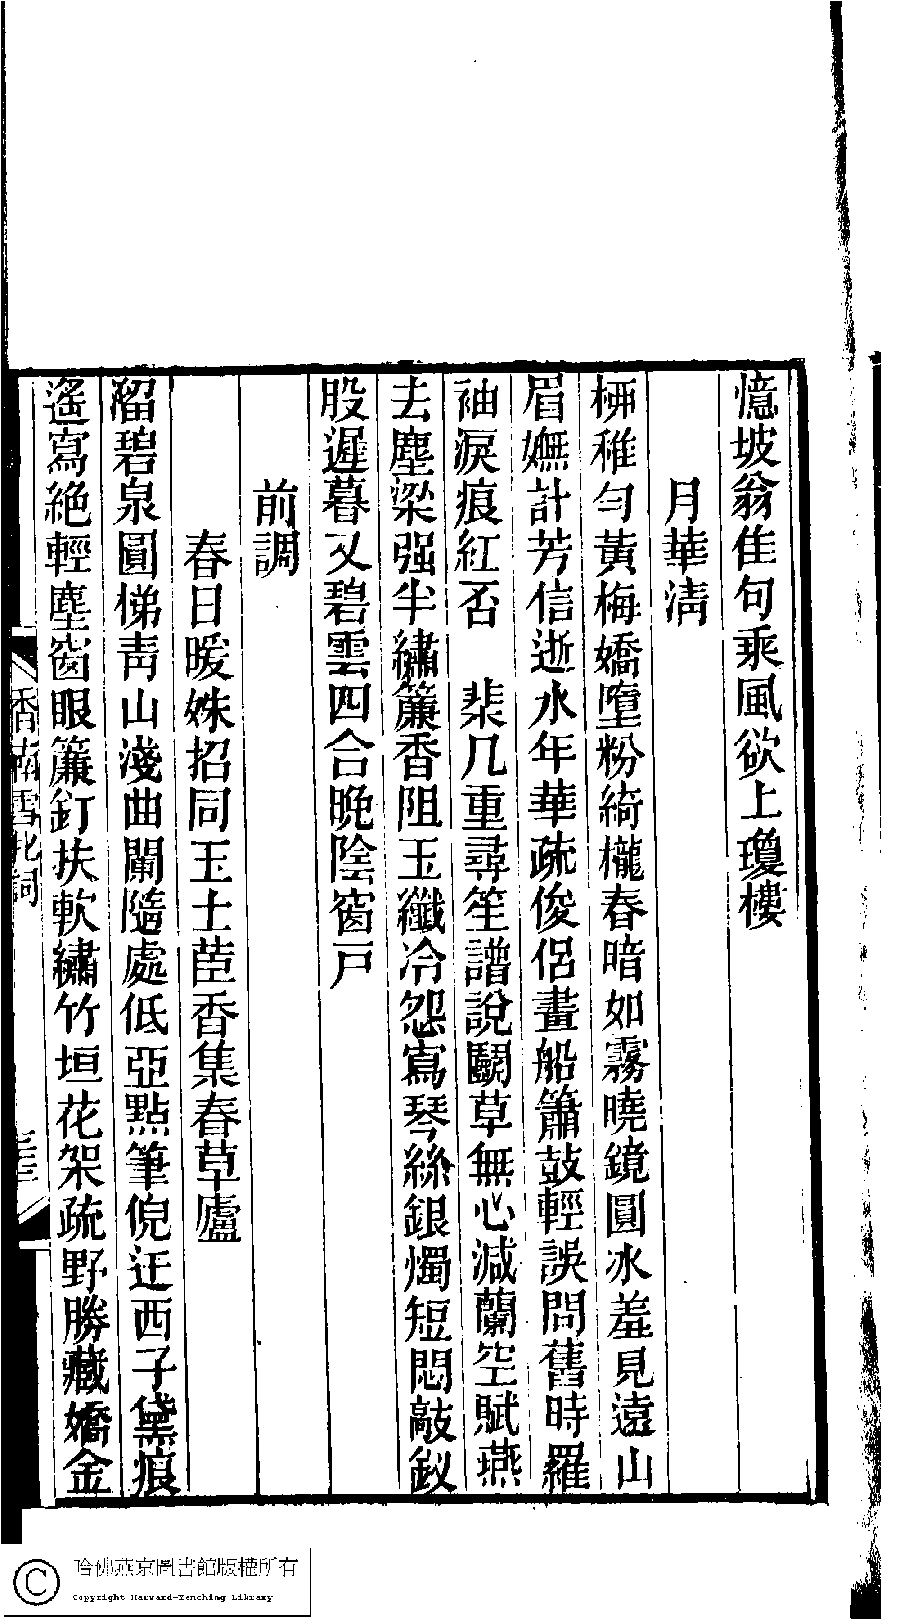 憶坡翁隹句乘風欲上瓊樓
月華淸
栁稚勻黃梅嬌墮粉綺櫳春暗如霧曉鏡圓冰羞見遠山
眉嫵計芳信逝水年華疏俊侶畫船簫鼓輕誤問舊時羅
袖淚痕紅否　棐几重尋笙譜說鬭草無心減蘭空賦燕
去塵梁强半繡簾香阻玉纖冷怨寫琴絲銀燭短悶敲釵
股遲暮又碧雲四合晚陰窗戸
前調
春日暖姝招同玉士茝香集春草廬
溜碧泉圓梯靑山淺曲闌隨處低亞點筆倪迂西子黛痕
遙寫絶輕塵窗眼簾釘扶軟繡竹垣花架疏野勝藏嬌金
香南雪北詞
哈佛燕京圖書館版權所有
Copyright Harvard-Yenching Library